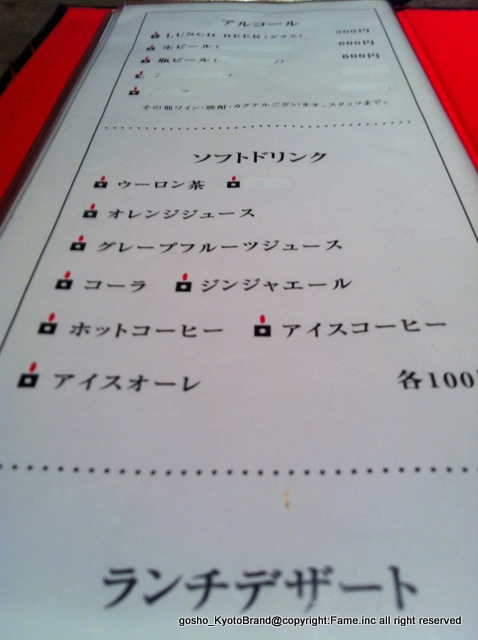 アルコール
LUNCH BEER(グラス) 300円
生ビール( 600円
瓶ビール( ) 600円
その他ワイン・焼酎・カクテルございます。スタッフまで♪
ソフトドリンク
ウーロン茶
オレンジジュース
グレープフルーツジュース
コーラ ジンジャエール
ホットコーヒー アイスコーヒー
アイスオーレ 各100
ランチデザート
gosho_KyotoBrand@copyright:Fame.inc all right reserved